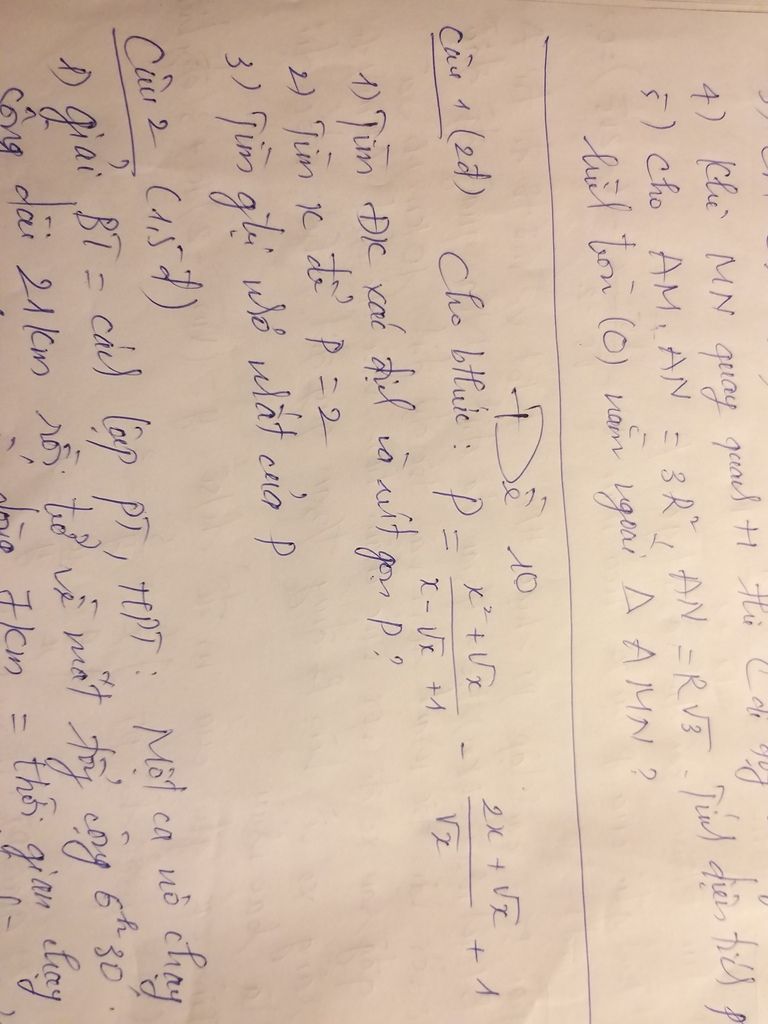 4) Khi MN quay quanh H thì C di
5) Cho AM. AN = 3R², AN = R√3. Tính diện tích p
hình tròn (O) nằm ngoài Δ AMN?
Đề 10
Câu 1 (2đ) Cho bthức: P = (x² + √x)/(x - √x + 1) - (2x + √x)/√x + 1
1) Tìm ĐK xác định và rút gọn P?
2) Tìm x để P = 2
3) Tìm gtrị nhỏ nhất của P
Câu 2 (1,5 đ)
1) giải BT = cách lập PT, HPT: Một ca nô chạy
sông dài 21km rồi trở về mất tổng cộng 6h30'.
7km = thời gian chạy